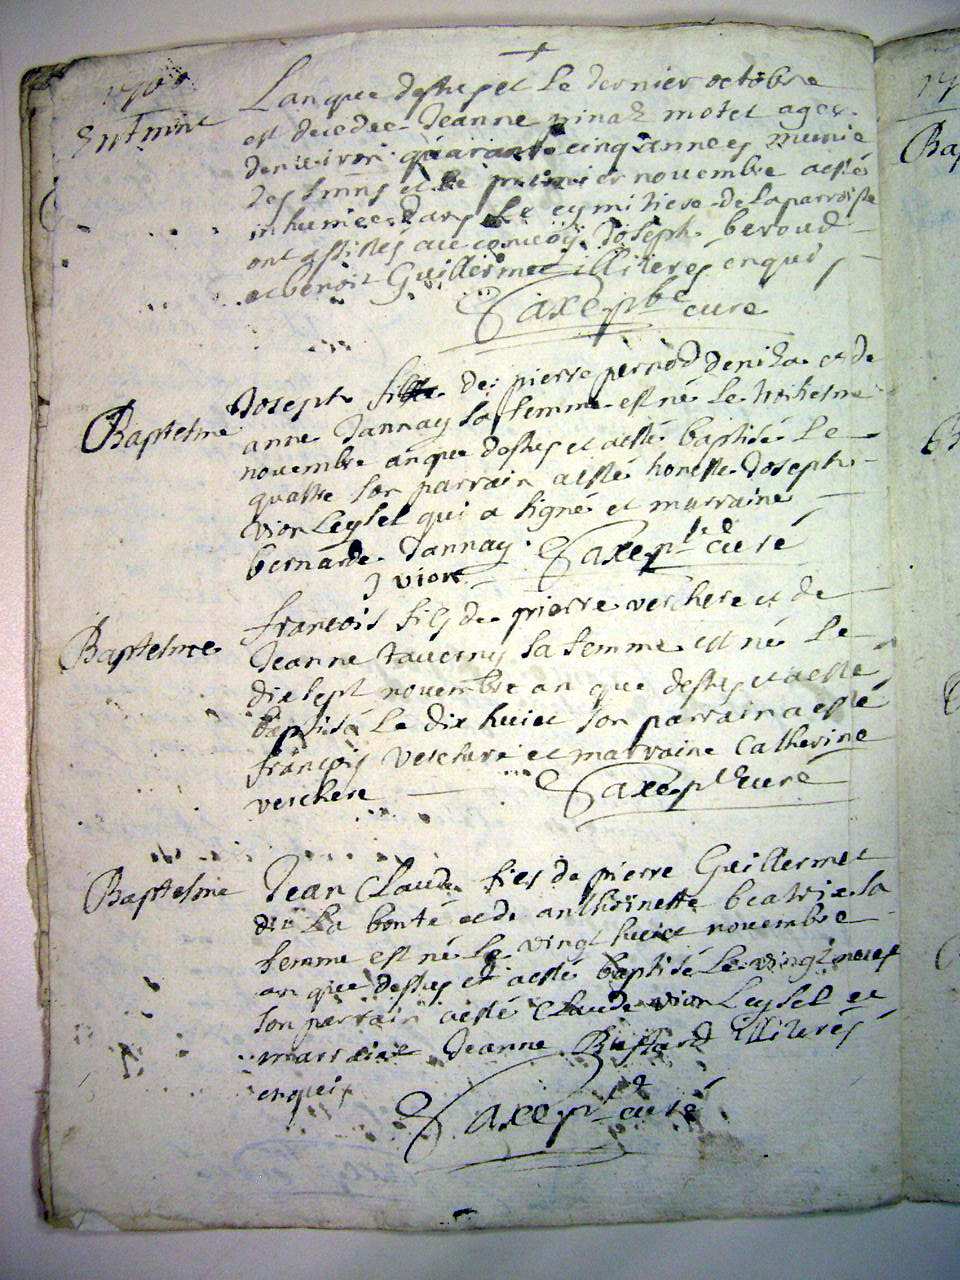 Lan que dessus et le dernier octobre
Enterrmt est decedee Jeanne pinaz motet agee
denviron quarante cinq annees munie
des smns et le premier novembre a esté
inhumée dans le cymitiere de la parroisse
ont assistés au convoy Joseph beroud
et benoit Guillermet illiteres enquis
Saxe pbr curé
Baptesme Joseph fils de pierre pernod deniza et de
anne Jannay sa femme est né le troisiesme
novembre an que dessus et a esté baptisé le
quattre son parrain a esté honeste Joseph
vion Leysel qui a signé et marraine
bernarde Jannay Saxe pbr curé
J vion
francois fils de pierre verchere et de
Baptesme Jeanne taverny sa femme est né le
dix sept novembre an que dessus et a esté
baptisé le dix huict son parrain a esté
françois verchere et marraine Catherine
verchere Saxe pbr curé
Baptesme Jean Claude fils de pierre Guillermet
dit la bonté et de anthoinette beatrix sa
femme est né le vingt huict novembre
an que dessus et a esté baptisé le vingt neuf
son parrain a esté Claude vion Leysel et
marraine Jeanne Bustard illiterés
enquis
Saxe pbr curé
Bap